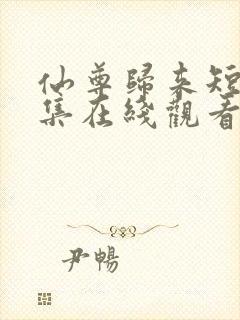 仙尊歸來短
集在綫觀看
尹暢